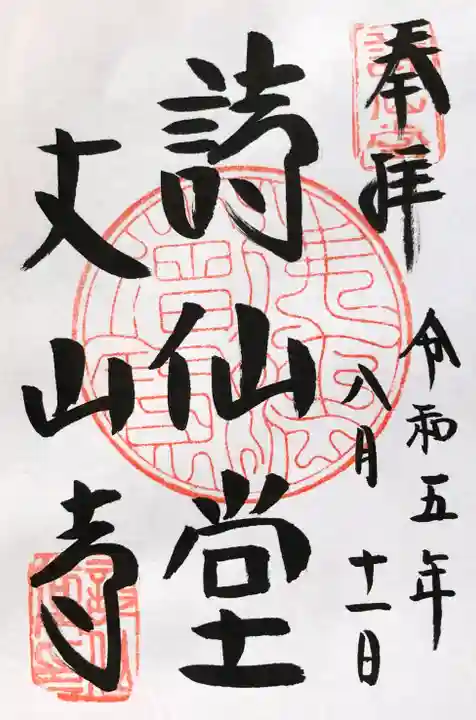 奉拝
令和五年
八月十一日
詩仙堂
丈山寺